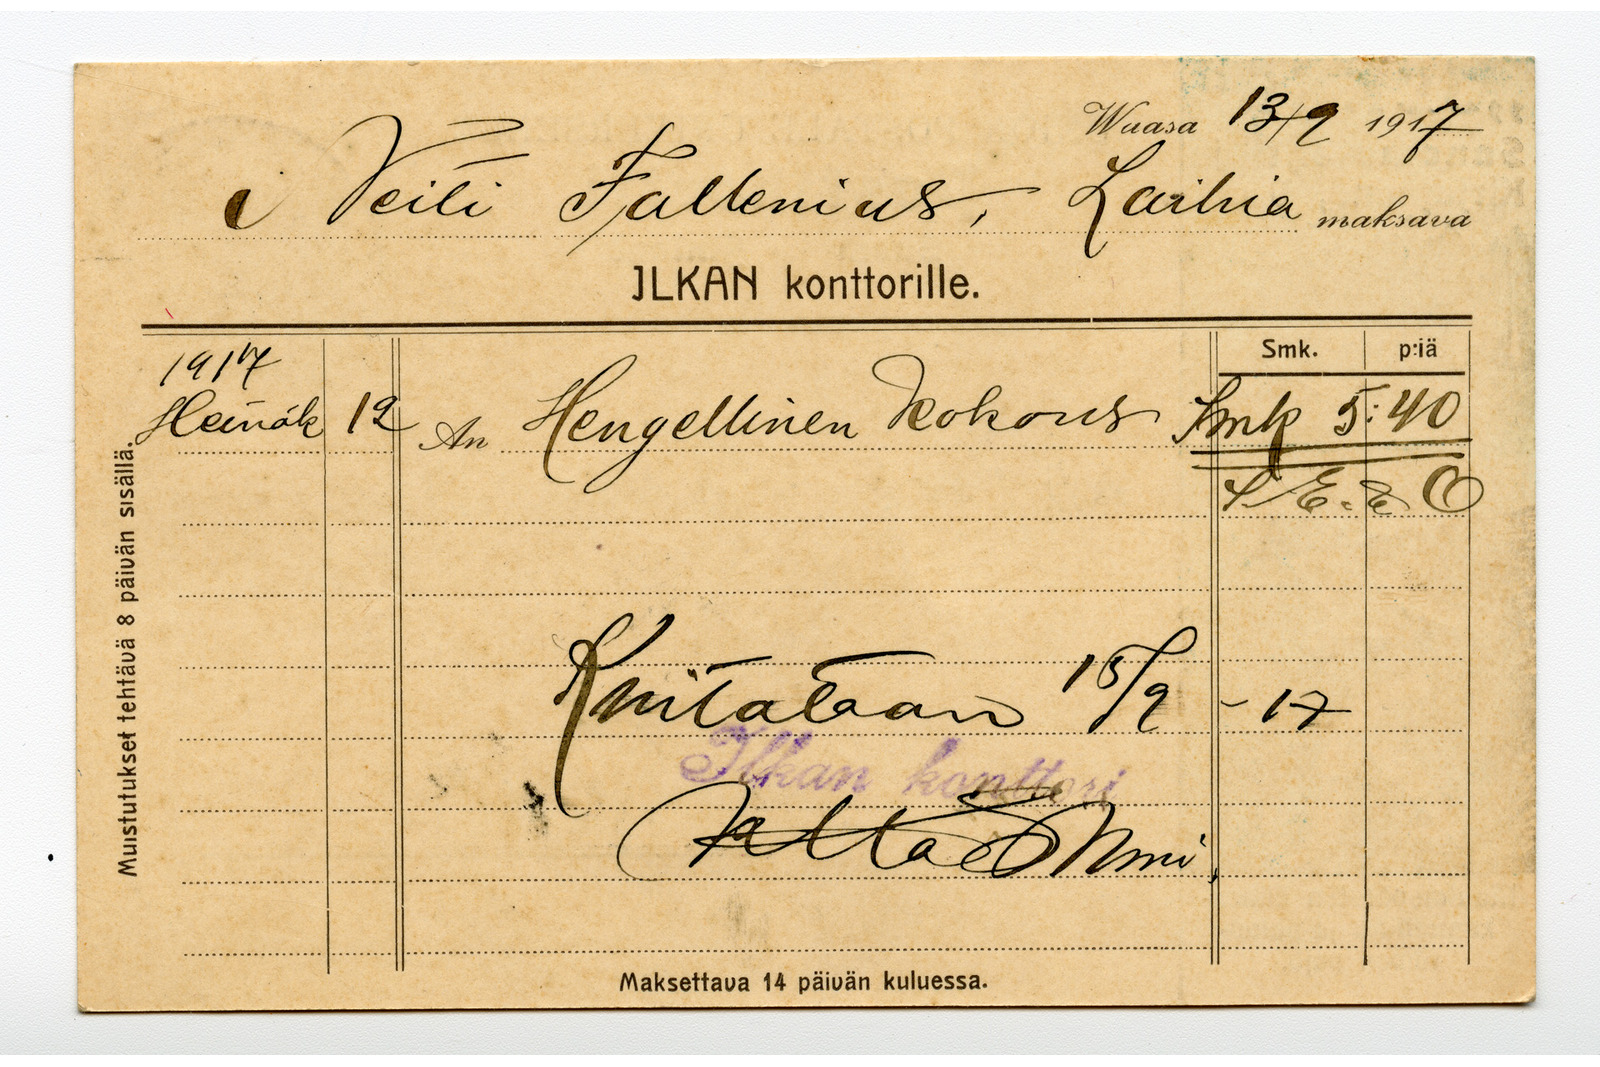 Wuasa 13/9 1917
Veiti Fallenius, Laihia maksava
ILKAN konttorille.
Smk. p:iä
1917
Heinäk 12 An Hengellinen Kokous Smk 5:40
S. E. & O
Kuitataan 15/9 - 17
Ilkan konttori
Maksettava 14 päivän kuluessa.
Muistutukset tehtävä 8 päivän sisällä.